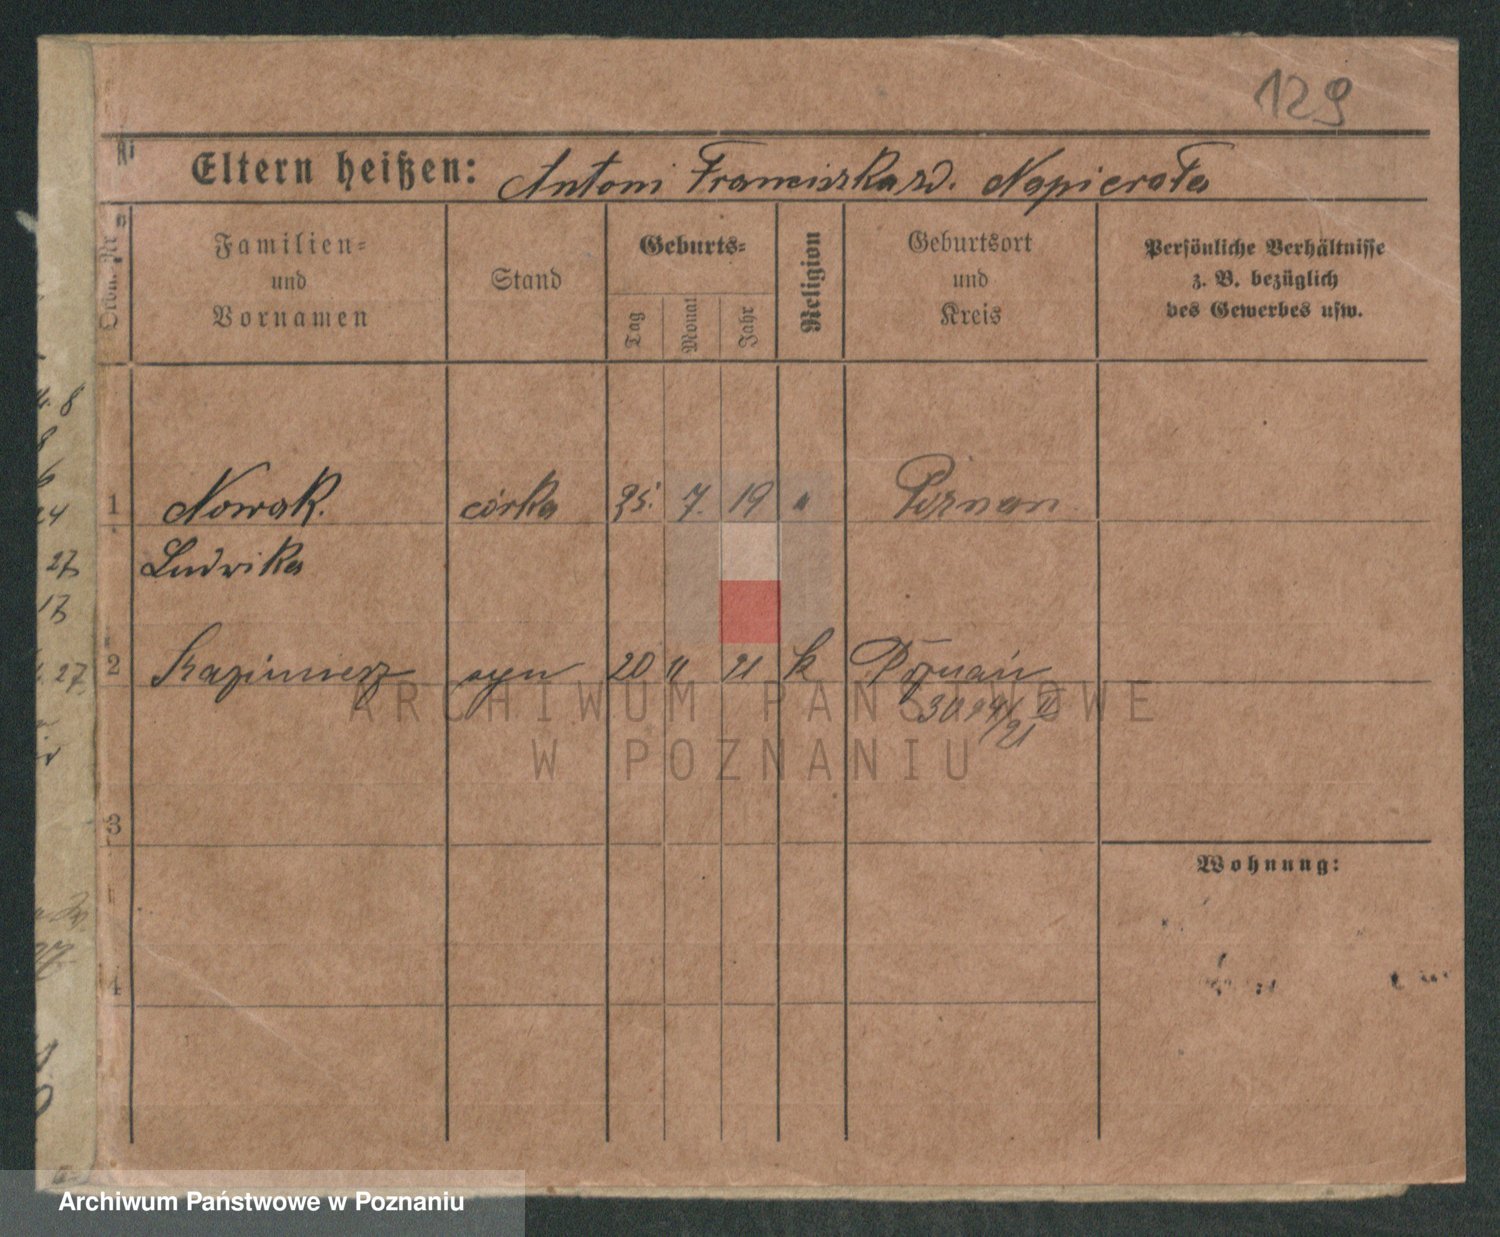 129
Eltern heißen: Antoni Franciszka zd. Napierała
Ordn. Nr
Familien-
und
Vornamen
Stand
Geburts-
Tag
Monat
Jahr
Religion
Geburtsort
und
Kreis
Persönliche Verhältnisse
z. B. bezüglich
des Gewerbes usw.
1 Nowak. córka 25. 7. 19 " Poznan
Ludwika
2 Kazimierz syn 20 11 21 k Poznań
ARCHIWUM PAŃSTWOWE
W POZNANIU
3
Wohnung:
4
8
24
27
17
27
Archiwum Państwowe w Poznaniu